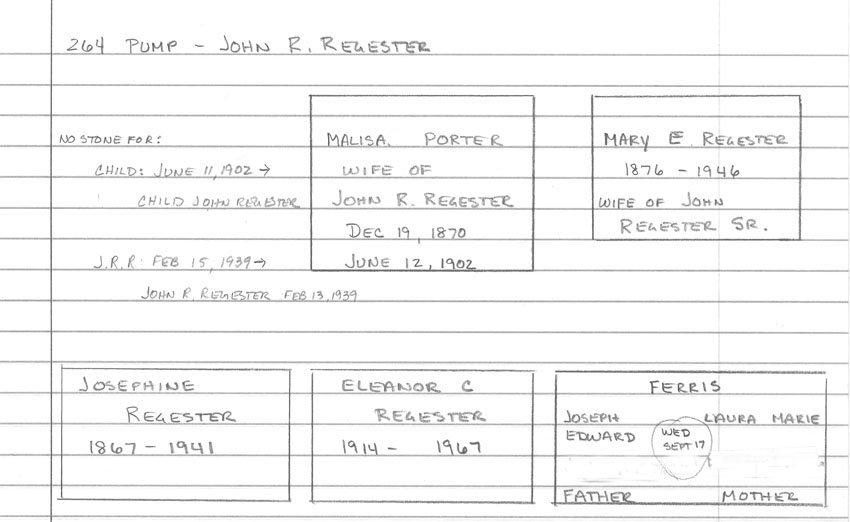 264 PUMP - JOHN R. REGESTER
NO STONE FOR:
CHILD: JUNE 11, 1902 →
CHILD JOHN REGESTER
J.R.R: FEB 15, 1939 →
JOHN R. REGESTER FEB 13, 1939
MALISA. PORTER
WIFE OF
JOHN R. REGESTER
DEC 19, 1870
JUNE 12, 1902
MARY E REGESTER
1876 - 1946
WIFE OF JOHN
REGESTER SR.
JOSEPHINE
REGESTER
1867 - 1941
ELEANOR C
REGESTER
1914 - 1967
FERRIS
JOSEPH LAURA MARIE
EDWARD
WED
SEPT 17
FATHER MOTHER